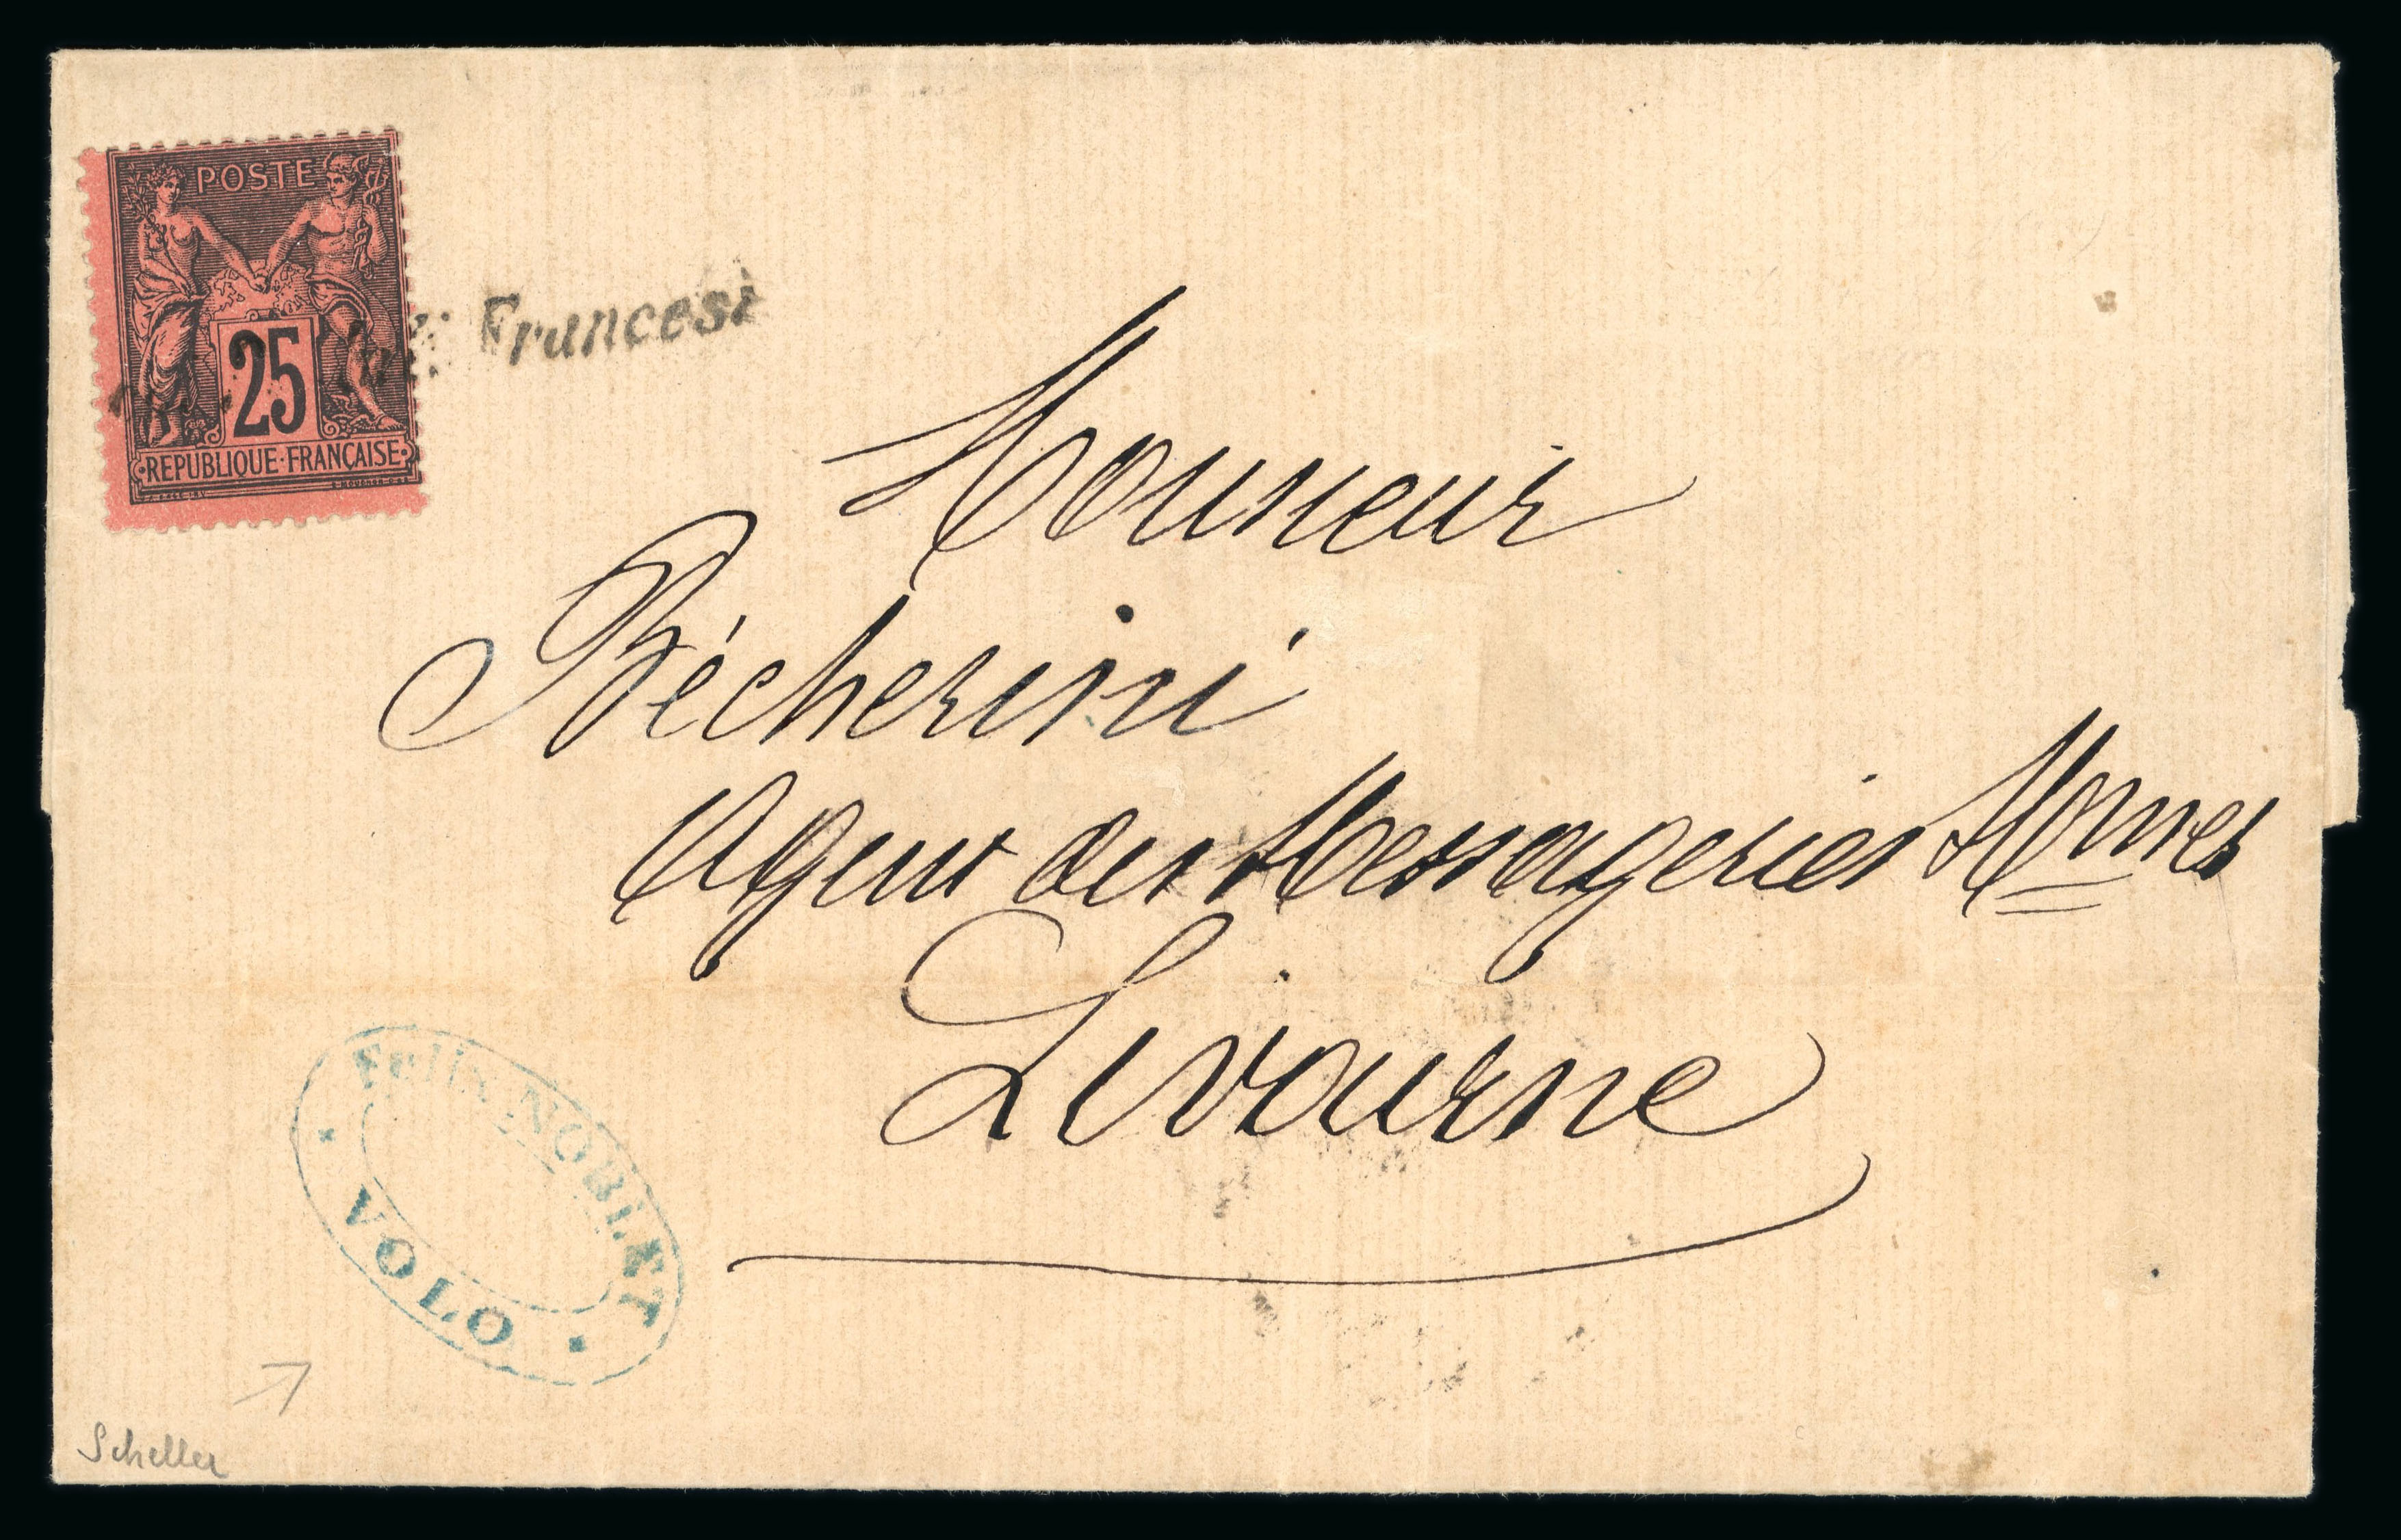 POSTE
25
REPUBLIQUE FRANÇAISE
Francesi
Monsieur
Bécherini
Agent des Messageries Mmes
Livourne
Felix NOBLET
VOLO
Scheller